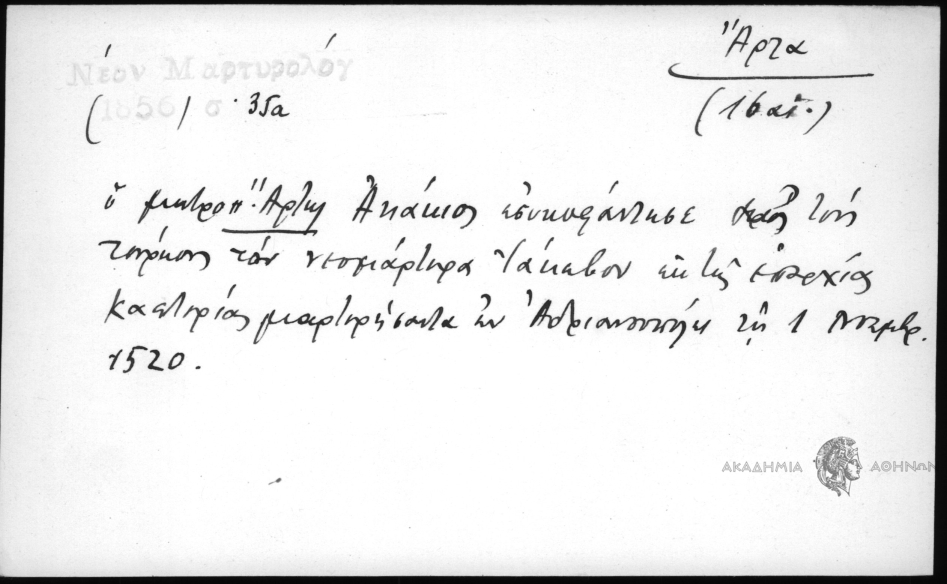 Ἄρτα
Νέον Μαρτυρολόγ
(1856) σ. 35α
(16 αἰ.)
ὁ μητροπ. Ἄρτης Ἀκάκιος ἐσυκοφάντησε πρὸς τοὺς
Τούρκους τὸν νεομάρτυρα Ἰάκωβον ἐκ τῆς ἐπαρχίας
Καστορίας μαρτυρήσαντα ἐν Ἀδριανουπόλει τῇ 1 Νοεμβρ.
1520.
ΑΚΑΔΗΜΙΑ ΑΘΗΝΩΝ